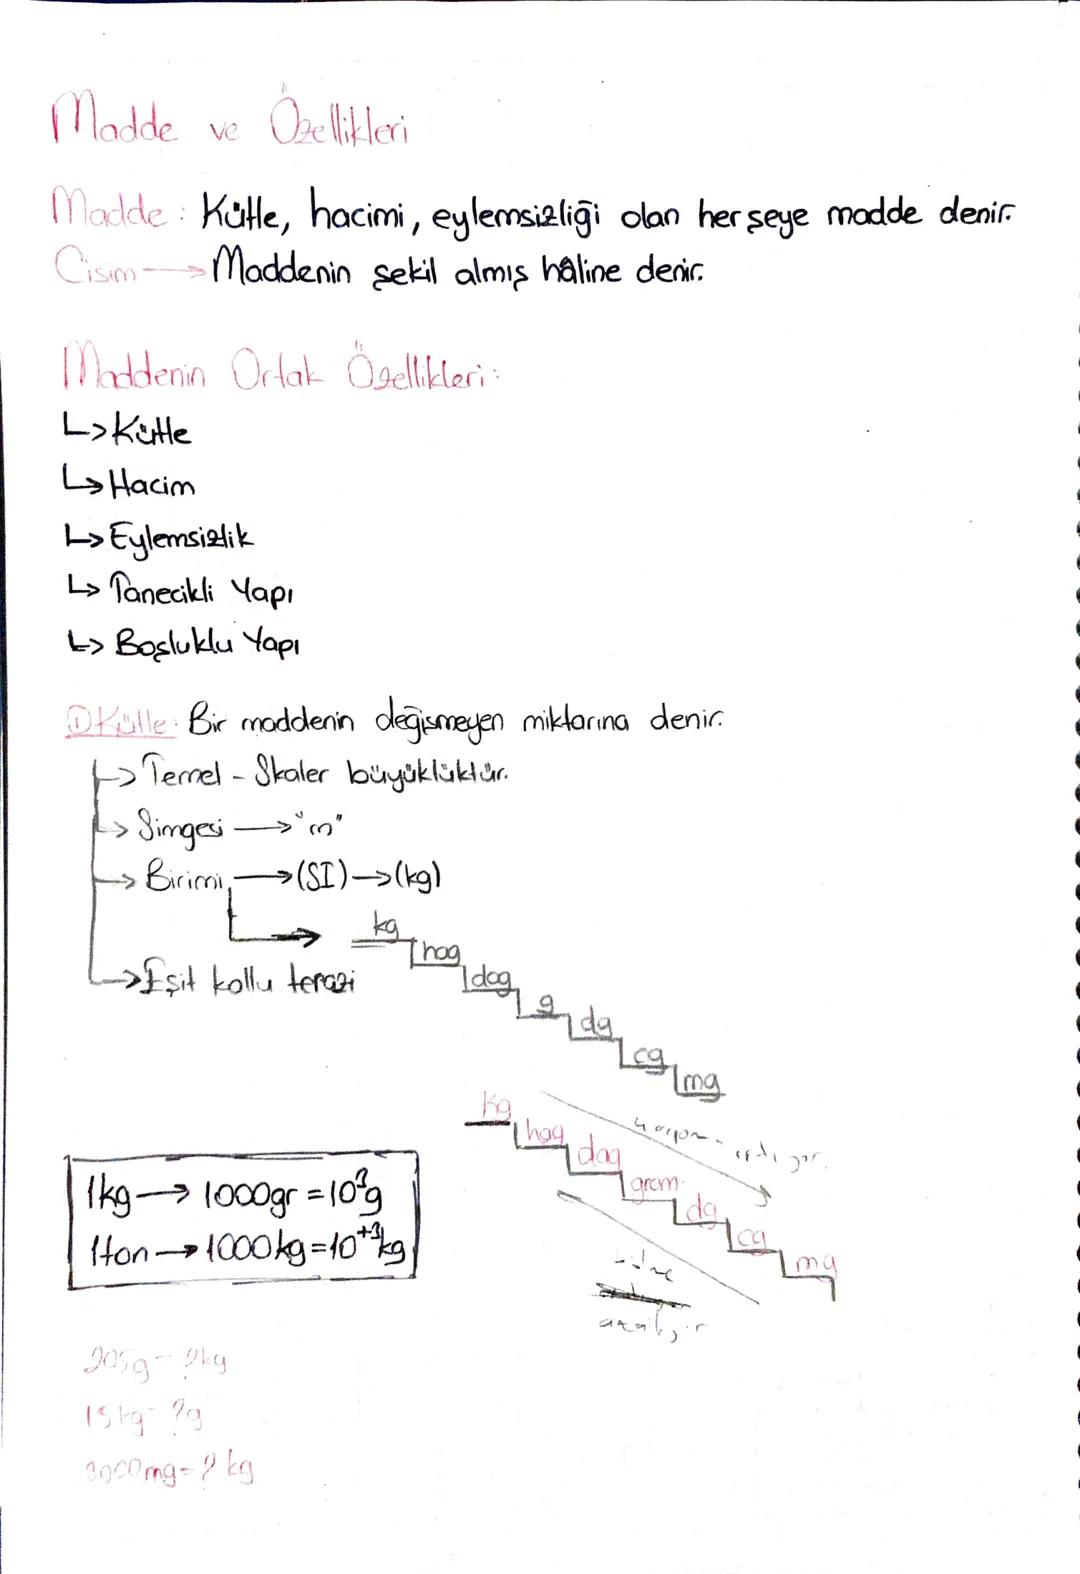 Madde ve Özellikleri
Madde: Kütle, hacimi, eylemsizliği olan her şeye madde denir.
Cisim → Maddenin şekil almış hâline denir.
Maddenin Ortak Özellikleri:
↳ Kütle
↳ Hacim
↳ Eylemsizlik
↳ Tanecikli Yapı
↳ Boşluklu Yapı
① Kütle: Bir maddenin değişmeyen miktarına denir.
→ Temel - Skaler büyüklüktür.
→ Simgesi → "m"
→ Birimi → (SI) → (kg)
kg
hag
dag
g
dg
cg
mg
→ Eşit kollu terazi
kg
hag
dag
gram
dg
cg
mg
azalıyor
1kg → 1000gr = 10³g
1ton → 1000kg = 10⁺³kg
205g = ?kg
15kg = ?g
3000mg = ? kg